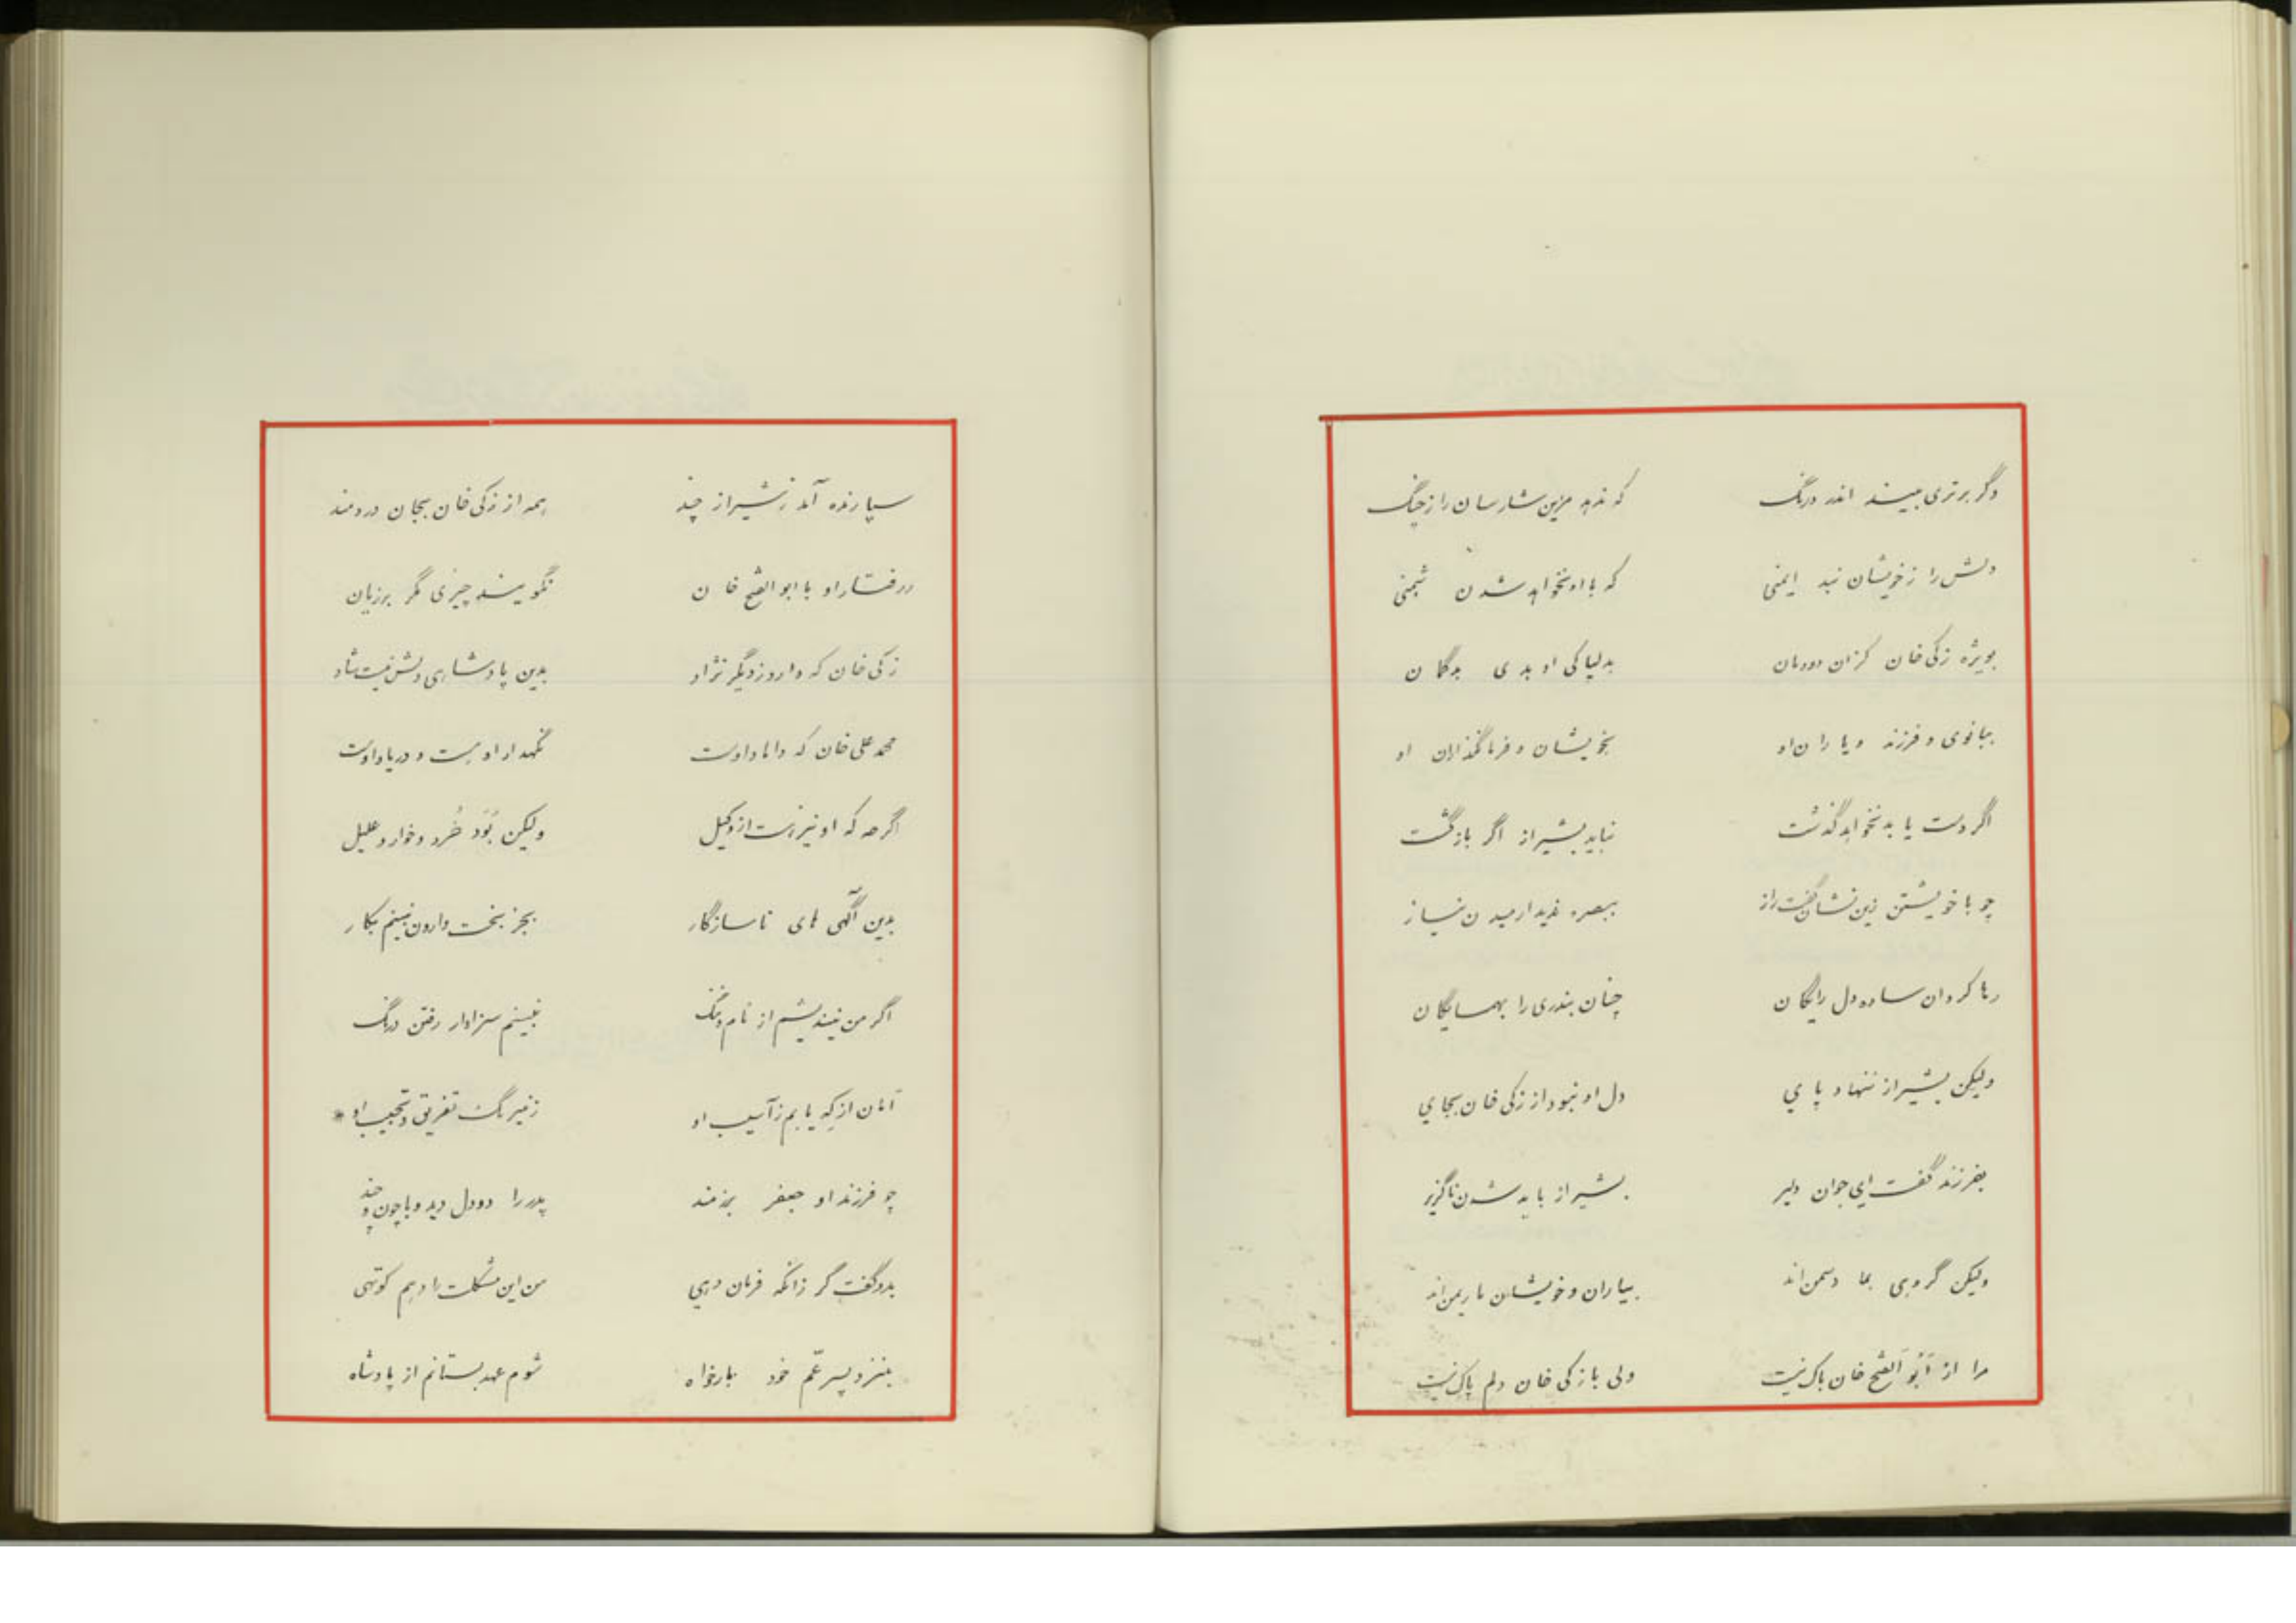 دگر برتری بیند اندر درنگ    که ندهد مزین شارسان را ز چنگ
دلش را ز خویشان نبد ایمنی    که با او نخواهد شدن
بویژه زکی خان کزان دودمان    بدلپاکی او بدی بدگمان
ببانوی و فرزند و یاران او    بخویشان و فرمانگذاران او
اگر دست یابد نخواهد گذشت    نباید بشیراز اگر بازگشت
چو با خویشتن زین نشان گفت راز    ببصره ندید ارمیدن نیاز
رها کرد ان ساده دل رایگان    چنان بندری را بهمسایگان
ولیکن بشیراز ننهاد پاي    دل او نبود از زکی خان بجاي
بفرزند گفت اي جوان دلیر    بشیراز باید شدن ناگزیر
ولیکن گروهی بما دشمن اند    بیاران و خویشان ما ریمن اند
مرا از اَبُو اَلفتح خان باک نیست    ولی با زکی خان دلم پاک نیست
سپارنده آمد ز شیراز چند    همه از زکی خان بجان دردمند
ز رفتار او با ابوالفتح خان    نگویند چیزی مگر بر زبان
زکی خان که دارد ز دیگر نژاد    بدین پادشاهی دلش نیست شاد
محمد علی خان که داماد اوست    نگهدار او هست و در یاد اوست
اگرچه که او نیز هست از وکیل    ولیکن بَوَد خُرد و خوار و علیل
بدین آگهی های ناسازگار    بجز بخت وارون نبینم بکار
اگر من نیندیشم از نام و ننگ    نبینم سزاوار رفتن درنگ
امان از که یابم ز آسیب او    ز نیرنگ تفریق و تحبیب او *
چو فرزند او جعفر    پدر را دودل دید و با چون و چند
بدو گفت گر زانکه فرمان دهي    من این مشکلت را دهم کوتهی
بنزد پسر عّم خود بارخواه    شوم عهد بستانم از پادشاه